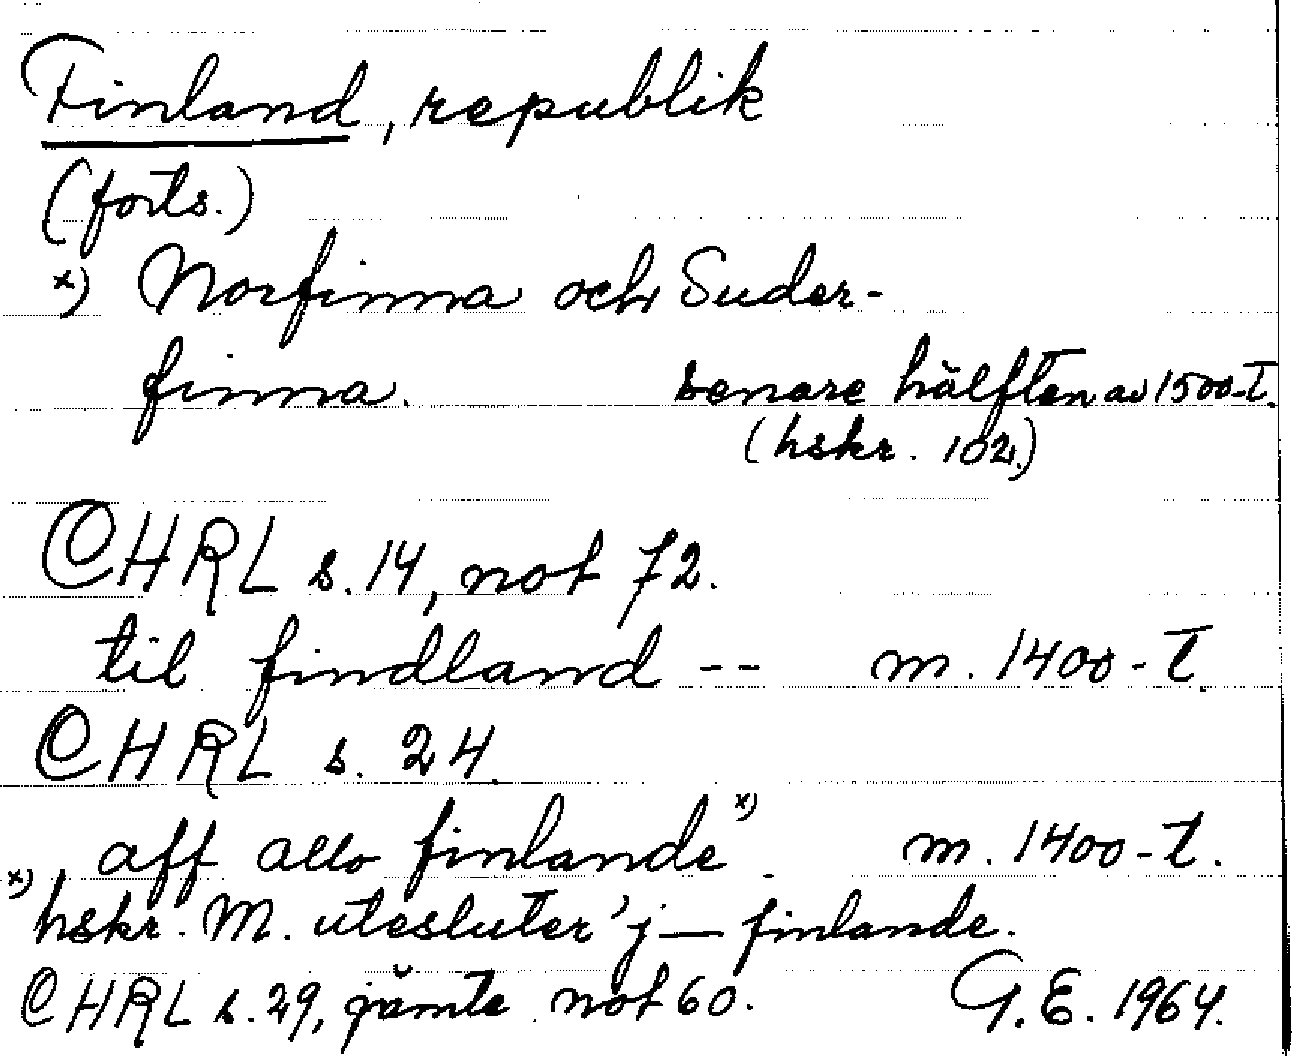 Finland, republik
(forts.)
x) Norfinna och Suder-
finna. senare hälften av 1500-t.
(hskr. 102.)
CHRL s. 14, not 72.
til findland -- m. 1400-t.
CHRL s. 24.
aff allo finlande x) m. 1400-t.
x) hskr. M. utesluter 'j — finlande.
CHRL s. 29, jämte not 60. G.E. 1964.